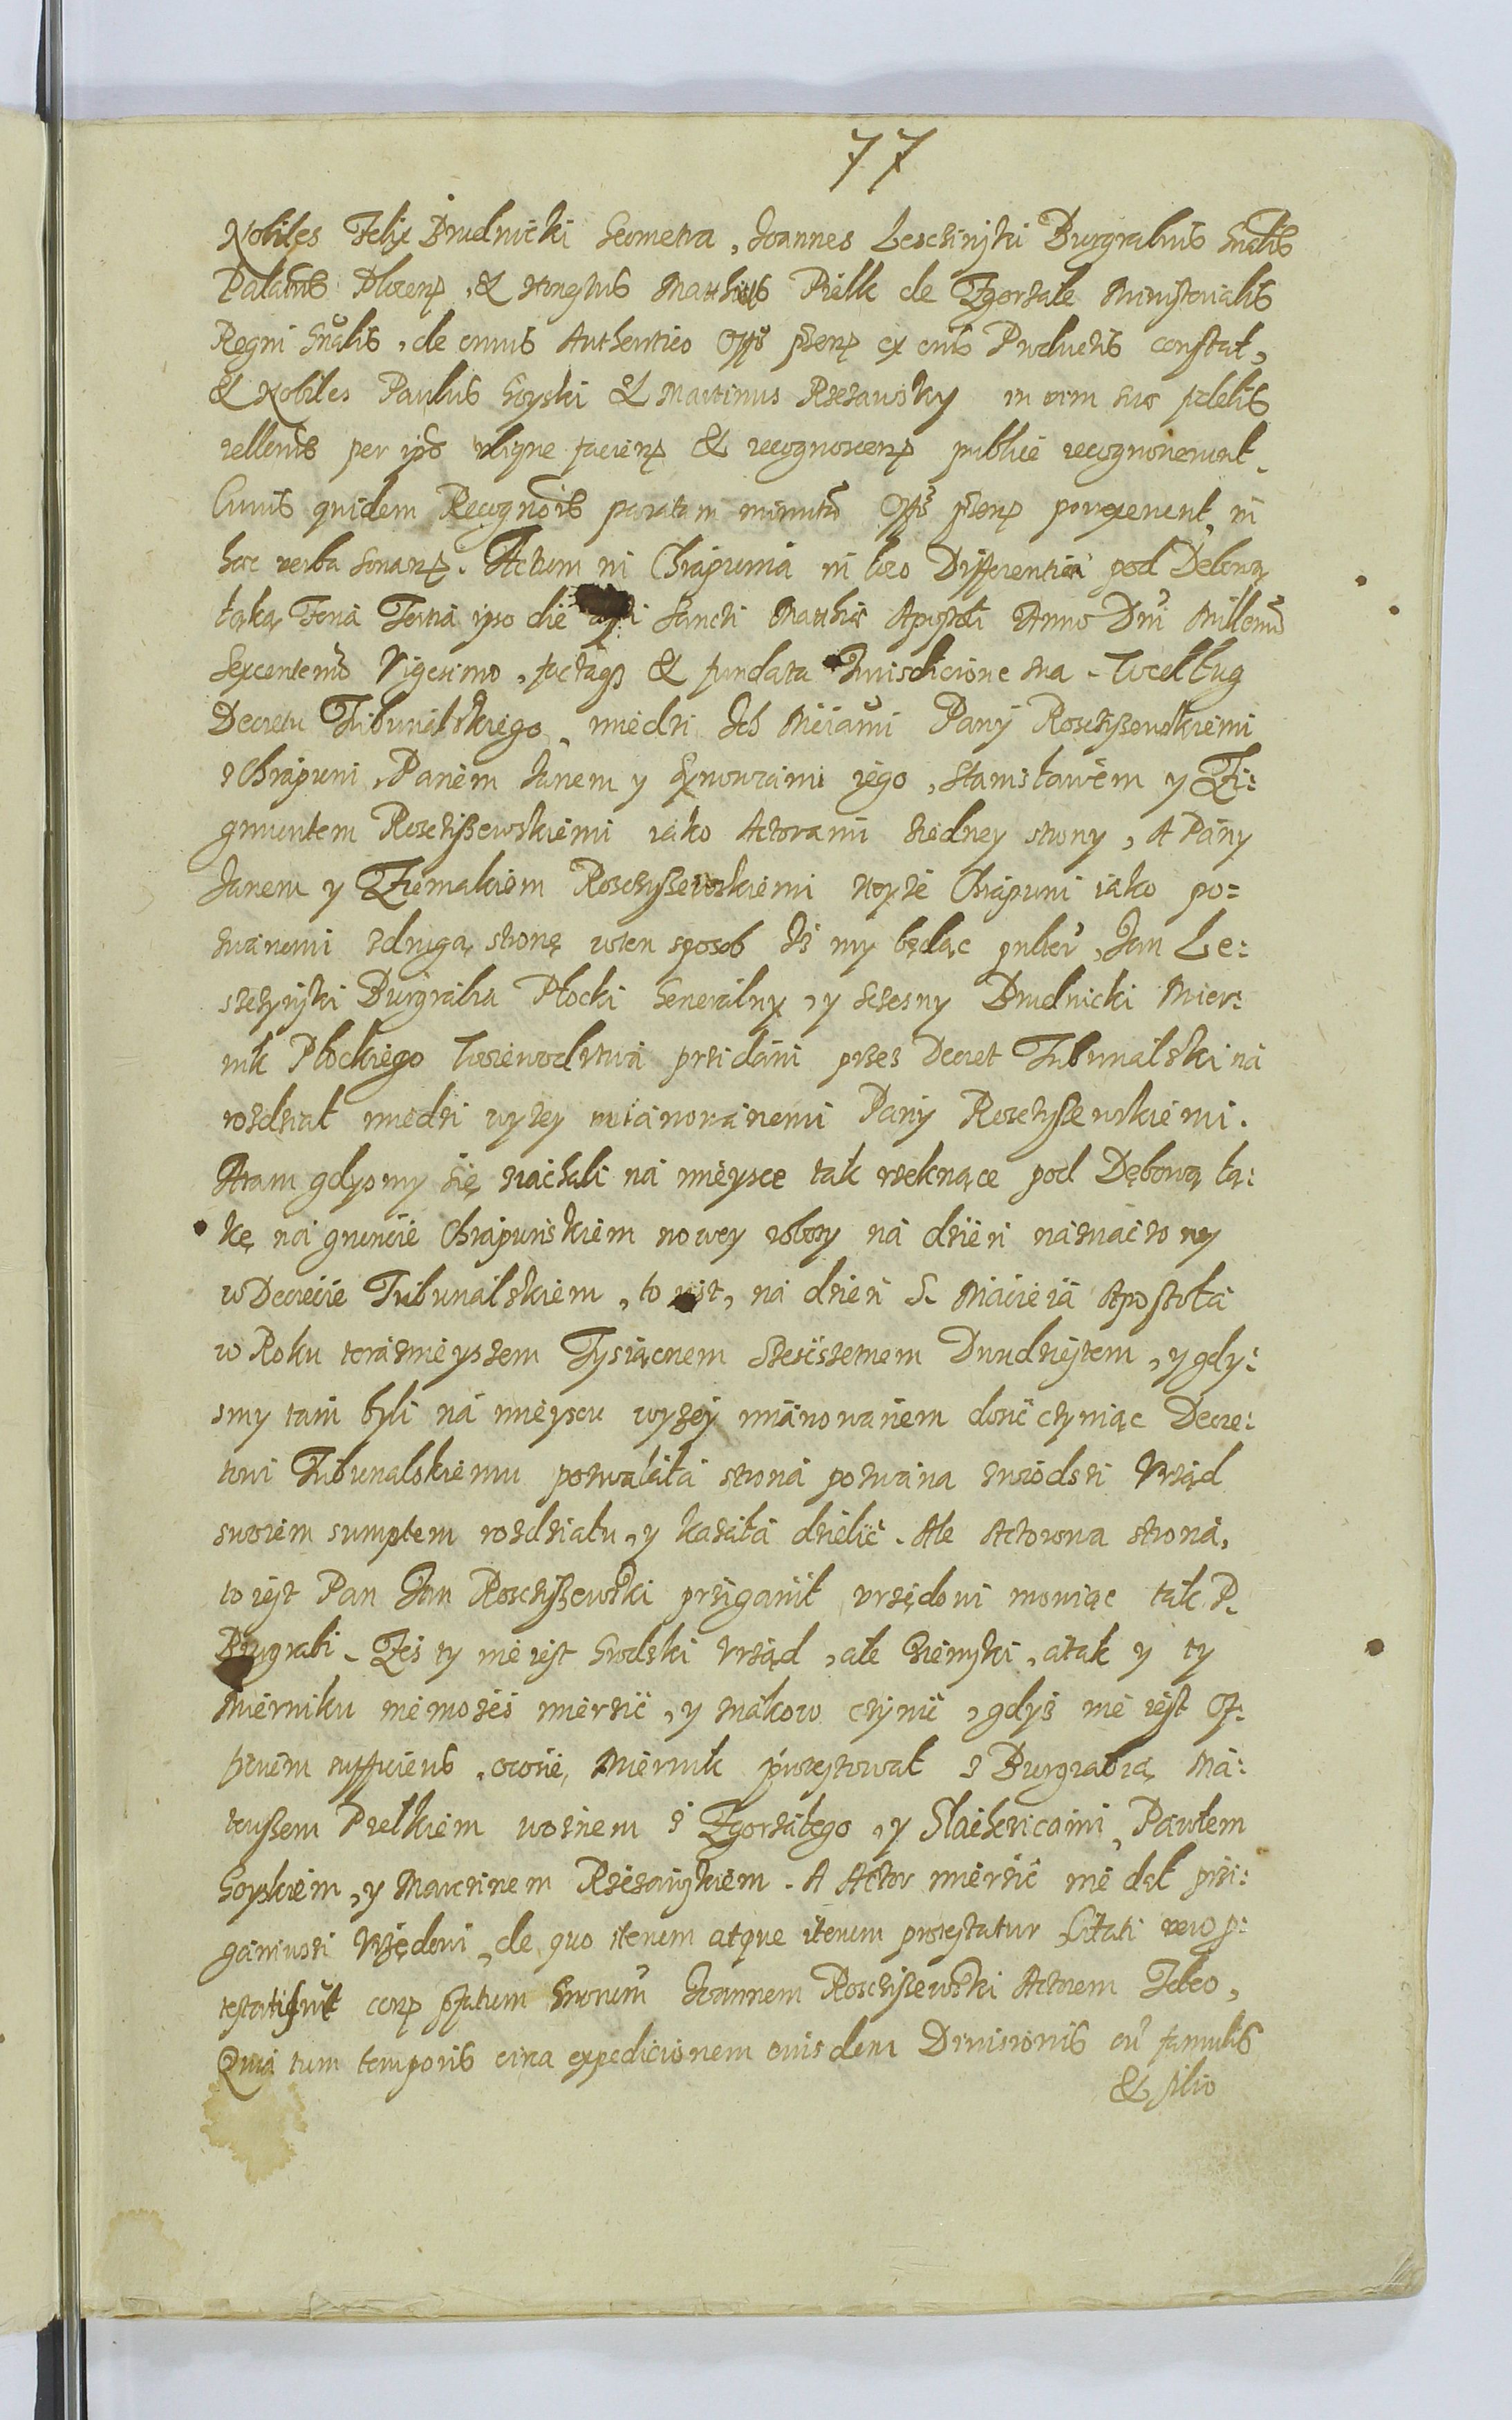 77
Nobiles Felix Brudnicki Geometra, Joannes Leschinski Burgrabius Gnalis
Palatus Plocen, & Honestus Matthias Pielk de Zgorzałe Ministerialis
Regni Gnalis, de cuius Authentico Offo pñti ex eius Productis constat,
& Nobiles Paulus Goyski & Martinus Rzezawsky in vim suæ fidelis
rellonis per ipsos utique facien & recognoscen publice recognoverunt.
Cuius quidem Recognois paratam minutã Offo pñti porrexerunt, in
hæc verba sonan. Actum in Chrapunia in loco Differentiæ pod Debową
łąką Feria Tertia ipso die Sancti Matthiæ Apostoli Anno Dni Millemo
Sexcentemo Vigesimo, factaq & fundata Jurisdicione sua. Według
Decretu Tribunalskiego, miedzi Ich Mciami Pany Roschiszewskiemi
z Chrapuni, Panem Janem y Synowcami iego, Stanisławem y Zi:
gmuntem Roschiszewskiemi iako Actorami ziedney strony, A Pany
Janem y Ziemakiem Roschyszewskiemi tesze Chrapuni iako po=
zwanemi zdrugą stronę wten sposob Iż my będąc pulter, Jan Le:
szczynski Burgrabia Płocki Generalny, y Sczesny Brudnicki Mier:
nik Płockiego Woiewodztwa przidani przes Decret Tribunalski na
rozdział miedzi wyzey mianowanemi Pany Roschyszewskiemi.
A tam gdysmy się ziachali na mieysce tak rzeknące pod Dębową łą:
kę na gruncie Chrapunskiem nowey roboty na dzień naznaczony
w Decrecie Tribunalskiem, to iest, na dzień S. Macieia Apostoła
w Roku teraznieyszem Tysiącnem Szescsetnem Dwudziestem, y gdy:
smy tam byli na mieyscu wyzey mianowanem dosić czyniąc Decre:
towi Tribunalskiemu pozwalała strona pozwana zwiodszi Vrząd
swoiem sumptem rozdziału, y kazała dzielić. Ale Actorowa strona,
to iest Pan Jan Roschiszewski przyganił vrzędowi mowiąc tak P.
Burgrabi. Zes ty nie iest Grodski Vrząd, ale Ziemski, a tak y ty
Mierniku niemozes mierzić, y znakow czynić, gdyż nie iest Of:
ficium sufficiens, ocosie, Miernik protestował z Burgrabią, Ma:
teuszem Piełkiem woznem z Zgorzałego, y Slachcicami, Pawłem
Goyskiem, y Marcinem Rzezawskiem. A Actor mierzić nie dał przi:
ganiwszi Vrzędowi, de quo iterum atque iterum protestatur Citati vero p:
testati sunt con pfatum Gnorum Joannem Roschiszewski Actorem Ideo,
Quia tum temporis circa expedicionem eiusdem Divisionis cu famulis
& filio